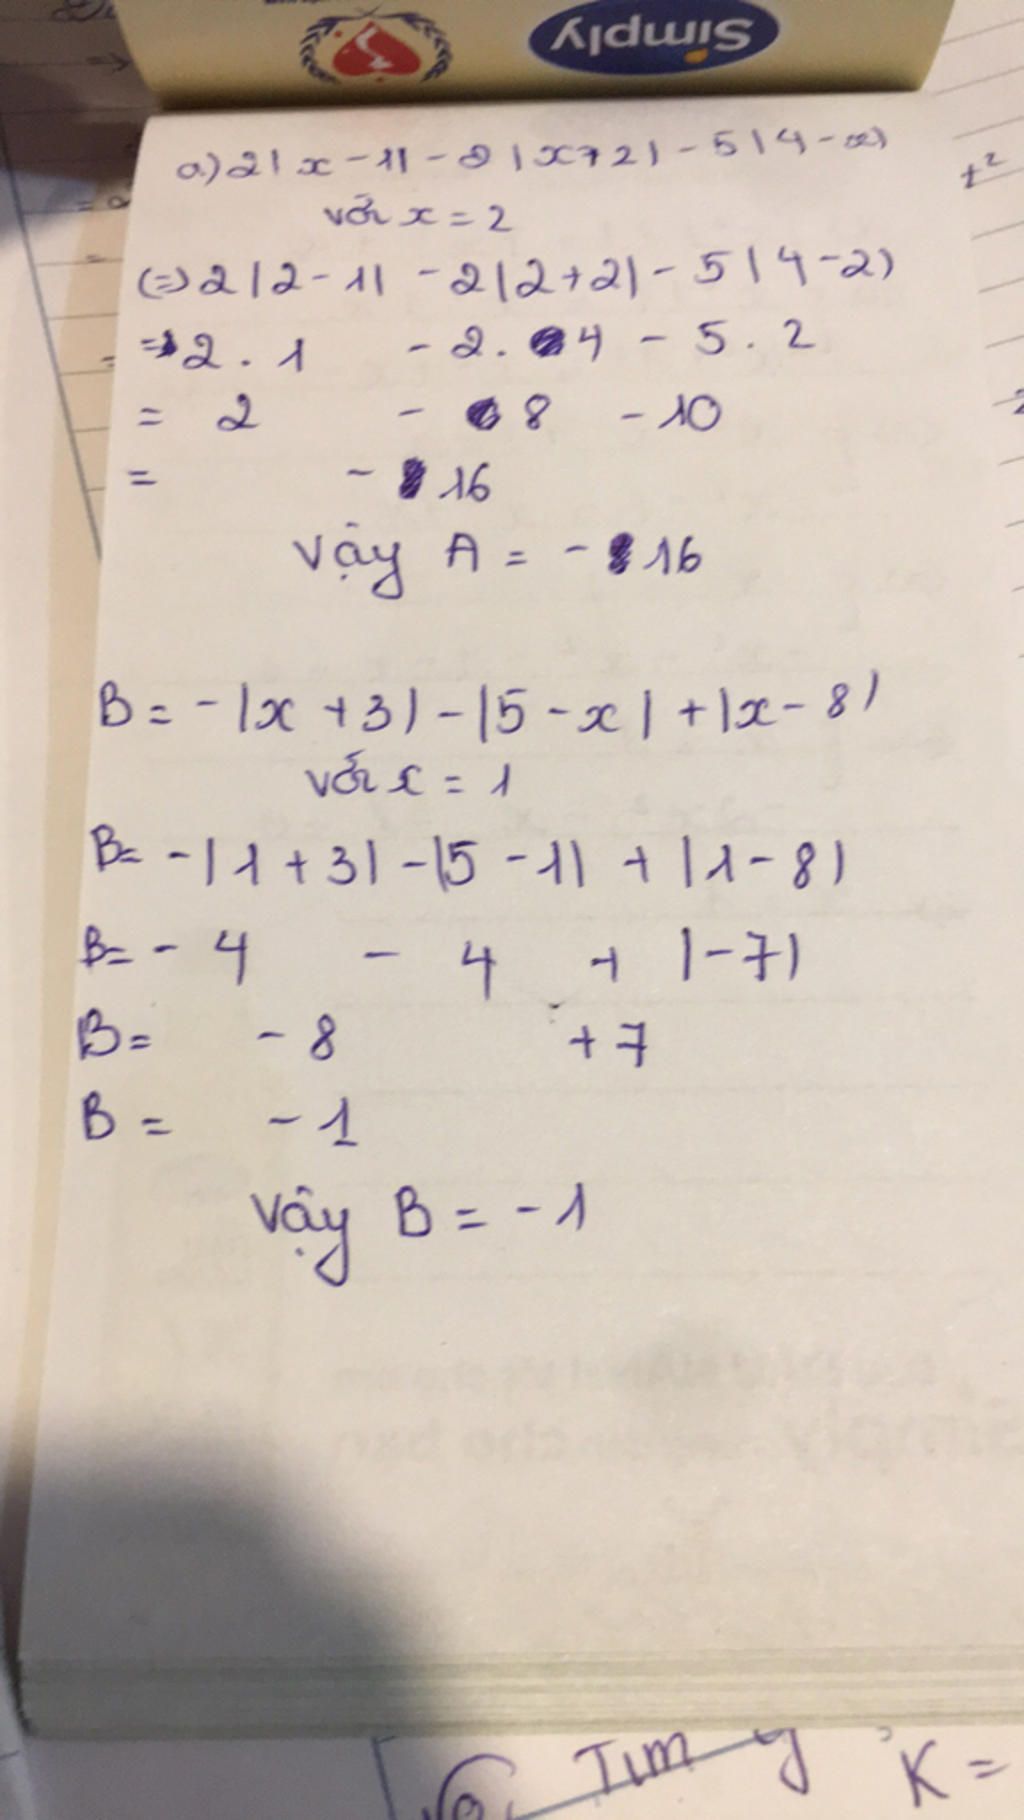 Simply
a) 2|x-1|-2|x+2|-5|4-x|
với x = 2
(=) 2|2-1| - 2|2+2| - 5|4-2|
= 2.1 - 2.4 - 5.2
= 2 - 8 - 10
= - 16
Vậy A = - 16
B = -|x+3|-|5-x|+|x-8|
với x = 1
B= -|1+3|-|5-1| + |1-8|
B= - 4 - 4 + |-7|
B= - 8 + 7
B = - 1
Vậy B = -1
t²
Tìm y K =